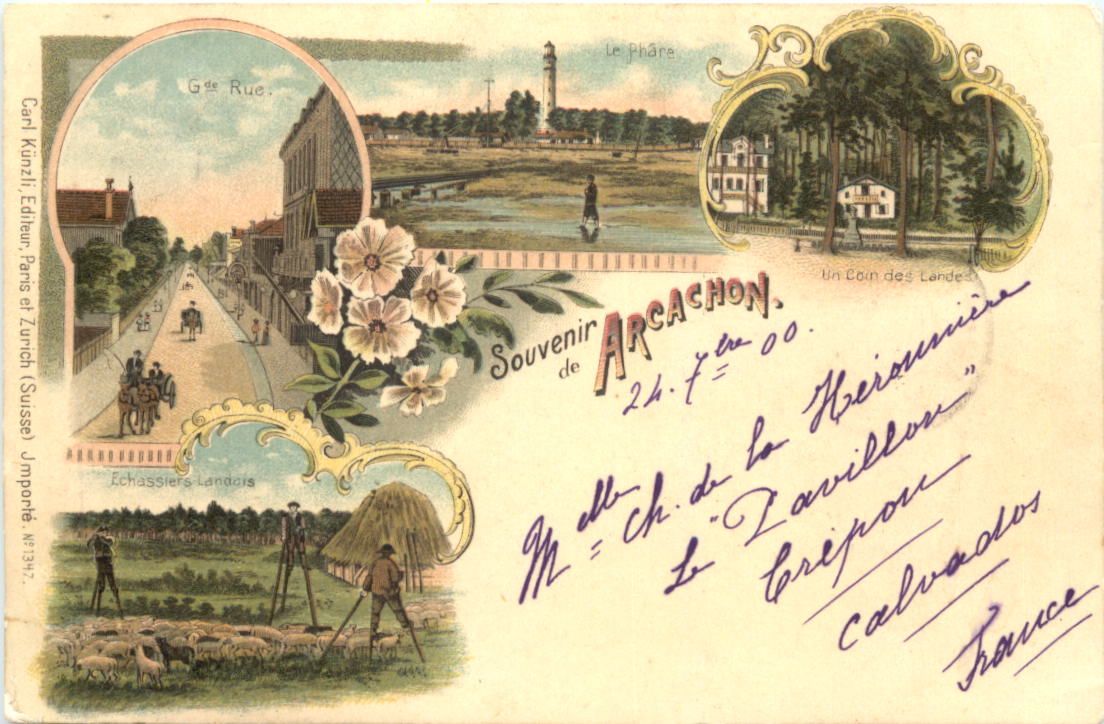 Gde Rue.
Le Phâre
Un Coin des Landes
Souvenir
de ARCACHON.
24. 7bre 00.
Melle Ch. de la Héronnière
Le "Pavillon"
Crépon
Calvados
France
Echassiers Landais
Carl Künzli, Editeur, Paris et Zurich (Suisse) Jmporté. No 1347.